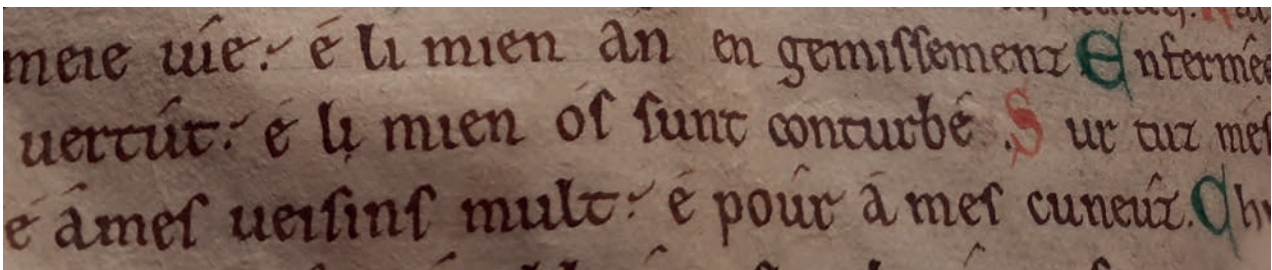 meie uie: é li mien án en gemissement Enfermée
uertút: é li mien ós sunt conturbé. Sur tuz mes
é ámes ueisins mult: é póur á mes cuneúz. Ch